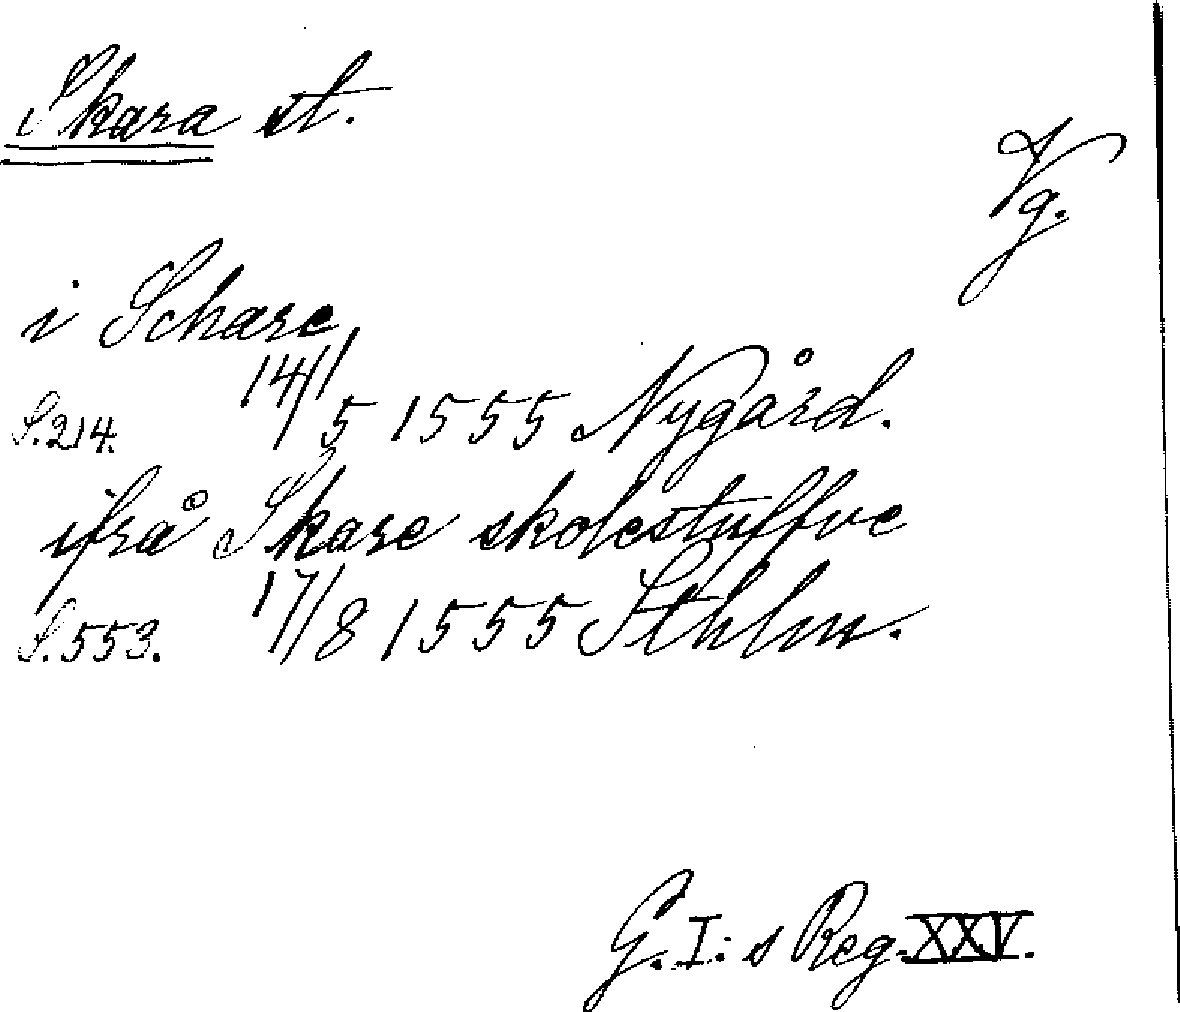 Skara st.
Vg.
i Schare
S. 214. 14/5 1555 Nygård.
ifrå Skare skolestuffve
S. 553. 17/8 1555 Sthlm.
G. I:s Reg. XXV.